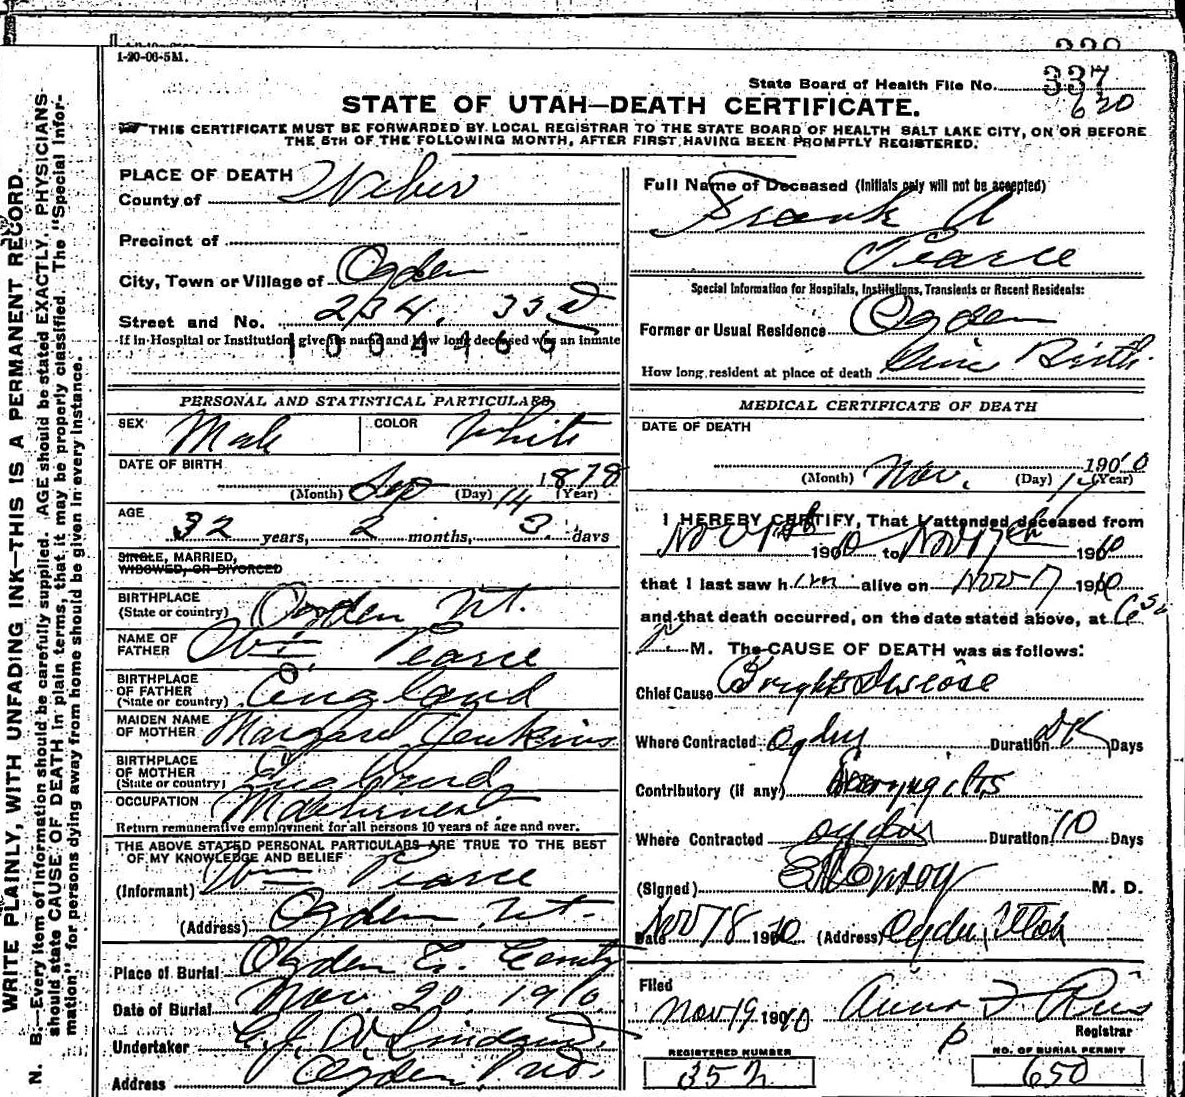 1-20-06-5M.
State Board of Health File No. 337
620
STATE OF UTAH—DEATH CERTIFICATE.
THIS CERTIFICATE MUST BE FORWARDED BY LOCAL REGISTRAR TO THE STATE BOARD OF HEALTH SALT LAKE CITY, ON OR BEFORE
THE 5TH OF THE FOLLOWING MONTH, AFTER FIRST HAVING BEEN PROMPTLY REGISTERED.
PLACE OF DEATH
County of Weber
Precinct of
City, Town or Village of Ogden
Street and No. 234. 33rd
If in Hospital or Institution, give its name and how long deceased was an inmate
1004466
PERSONAL AND STATISTICAL PARTICULARS.
SEX Male COLOR White
DATE OF BIRTH
(Month) Sep (Day) 14 1878 (Year)
AGE
32 years, 2 months, 3 days
SINGLE, MARRIED,
WIDOWED, OR DIVORCED
BIRTHPLACE
(State or country) Ogden Ut.
NAME OF
FATHER Wm. Pearce
BIRTHPLACE
OF FATHER
(State or country) England
MAIDEN NAME
OF MOTHER Margaret Jenkins
BIRTHPLACE
OF MOTHER
(State or country) England
OCCUPATION Machinest
Return remunerative employment for all persons 10 years of age and over.
THE ABOVE STATED PERSONAL PARTICULARS ARE TRUE TO THE BEST
OF MY KNOWLEDGE AND BELIEF
(Informant) Wm Pearce
(Address) Ogden Ut.
Place of Burial Ogden
Date of Burial Nov. 20. 1910.
Undertaker
Address Ogden
Full Name of Deceased (Initials only will not be accepted)
Frank A
Pearce
Special Information for Hospitals, Institutions, Transients or Recent Residents:
Former or Usual Residence Ogden
How long resident at place of death Since Birth.
MEDICAL CERTIFICATE OF DEATH
DATE OF DEATH
(Month) Nov. (Day) 17 1910 (Year)
I HEREBY CERTIFY, That I attended deceased from
1910 to Nov 17th 1910
that I last saw him alive on Nov 17 1910
and that death occurred, on the date stated above, at
P. M. The CAUSE OF DEATH was as follows:
Chief Cause Brights Disease
Where Contracted Ogden Duration DK Days
Contributory (if any)
Where Contracted Ogden Duration 10 Days
(Signed) E M Conroy M. D.
Date Nov 18 1910 (Address) Ogden, Utah
Filed
Nov 19 1910 Anna F Ries
Registrar
REGISTERED NUMBER
352
NO. OF BURIAL PERMIT
650
WRITE PLAINLY, WITH UNFADING INK—THIS IS A PERMANENT RECORD.
N. B.—Every item of information should be carefully supplied. AGE should be stated EXACTLY. PHYSICIANS
should state CAUSE OF DEATH in plain terms, that it may be properly classified. The "Special Infor-
mation" for persons dying away from home should be given in every instance.